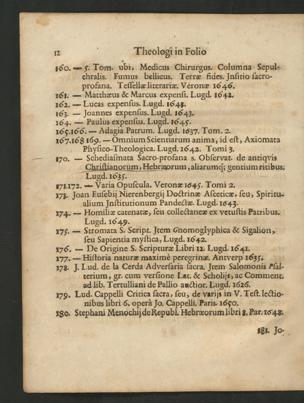 12 Theologi in Folio
160. — 5. Tom. ubi, Medicus Chirurgus. Columna Sepul-
chralis. Fumus bellicus. Terræ fides. Insitio sacro-
prosana. Tessellæ literariæ. Veronæ 1646.
161. — Matthæus & Marcus expensi. Lugd. 1642.
162. — Lucas expensus. Lugd. 1643.
163. — Joannes expensus. Lugd. 1643.
164. — Paulus expensus. Lugd. 1645.
165.166. — Adagia Patrum. Lugd. 1637. Tom. 2.
167.168 169. — Omnium Scientiarum anima, id est, Axiomata
Physico-Theologica. Lugd. 1642. Tomi 3.
170. — Schediasmata Sacro-profana s. Observat. de antiqvis
Christianorum, Hebræorum, aliarumq; gentium ritibus.
Lugd. 1635.
171.172. — Varia Opuscula. Veronæ 1645. Tomi 2.
173. Joan Eusebij Nierenbergij Doctrinæ Asceticæ, seu, Spiritu-
alium Institutionum Pandectæ. Lugd. 1643.
174. — Homiliæ catenatæ, seu collectaneæ ex vetustis Patribus.
Lugd. 1649.
175. — Stromata S. Script. Item Gnomoglyphica & Sigalion,
seu Sapientia mystica. Lugd. 1642.
176. — De Origine S. Scripturæ Libri 12. Lugd. 1641.
177. — Historia naturæ maximè peregrinæ. Antverp 1635.
178. J. Lud. de la Cerda Adversaria sacra. Item Salomonis Psal-
terium, gr. cum versione Lat. & Scholijs, ac Comment.
ad lib. Tertulliani de Pallio auctior. Lugd. 1626.
179. Lud. Cappelli Critica sacra, seu, de varijs in V. Test. lectio-
nibus libri 6. operâ Jo. Cappelli. Paris. 1650.
180. Stephani Menochij de Republ. Hebræorum libri 8. Par. 1648.
181. Jo-